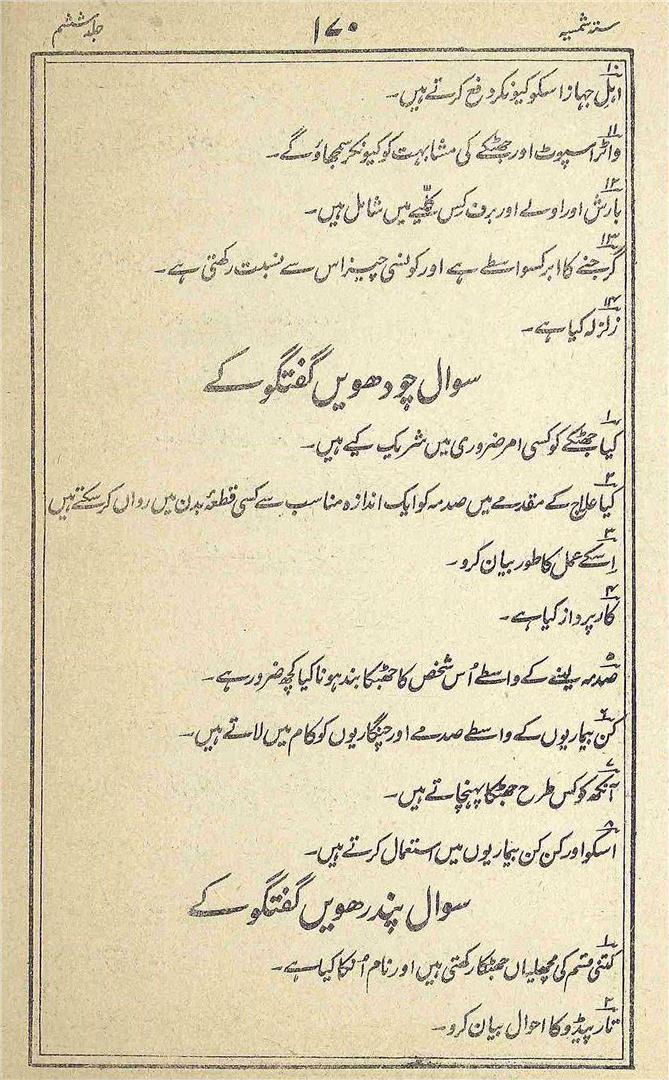 ستہ شمسیہ ۱۷۰ جلد ششم
۱۰ اہل جہاز اسکو کیونکر دفع کرتے ہیں۔
۱۱ واٹر اسپوٹ اور جھٹکے کی مشابہت کو کیونکر سمجھاؤگے۔
۱۲ بارش اور اولے اور برف کس کلّیے میں شامل ہیں۔
۱۳ گرجنے کا ابر کسواسطے ہے اور کونسی چیز اس سے نسبت رکھتی ہے۔
۱۴ زلزلہ کیا ہے۔
سوال چودھویں گفتگو کے
۱ کیا جھٹکے کو کسی امر ضروری میں شریک کیے ہیں۔
۲ کیا علاج کے مقدمے میں صدمہ کو ایک اندازہ مناسب سے کسی قطعۂ بدن میں رواں کر سکتے ہیں
۳ اِسکے عمل کا طور بیان کرو۔
۴ کارپرداز کیا ہے۔
۵ صدمہ لینے کے واسطے اُس شخص کا جھٹکا بند ہونا کیا کچھ ضرور ہے۔
۶ کن بیماریوں کے واسطے صدمے اور چنگاریوں کو کام میں لاتے ہیں۔
۷ آنکھ کو کس طرح جھٹکا پہنچاتے ہیں۔
۸ اسکو اور کن کن بیماریوں میں استعمال کرتے ہیں۔
سوال پندرھویں گفتگو کے
۱ کتنی قسم کی مچھلیاں جھٹکا رکھتی ہیں اور نام اُنکا کیا ہے۔
۲ تارپیڈو کا احوال بیان کرو۔